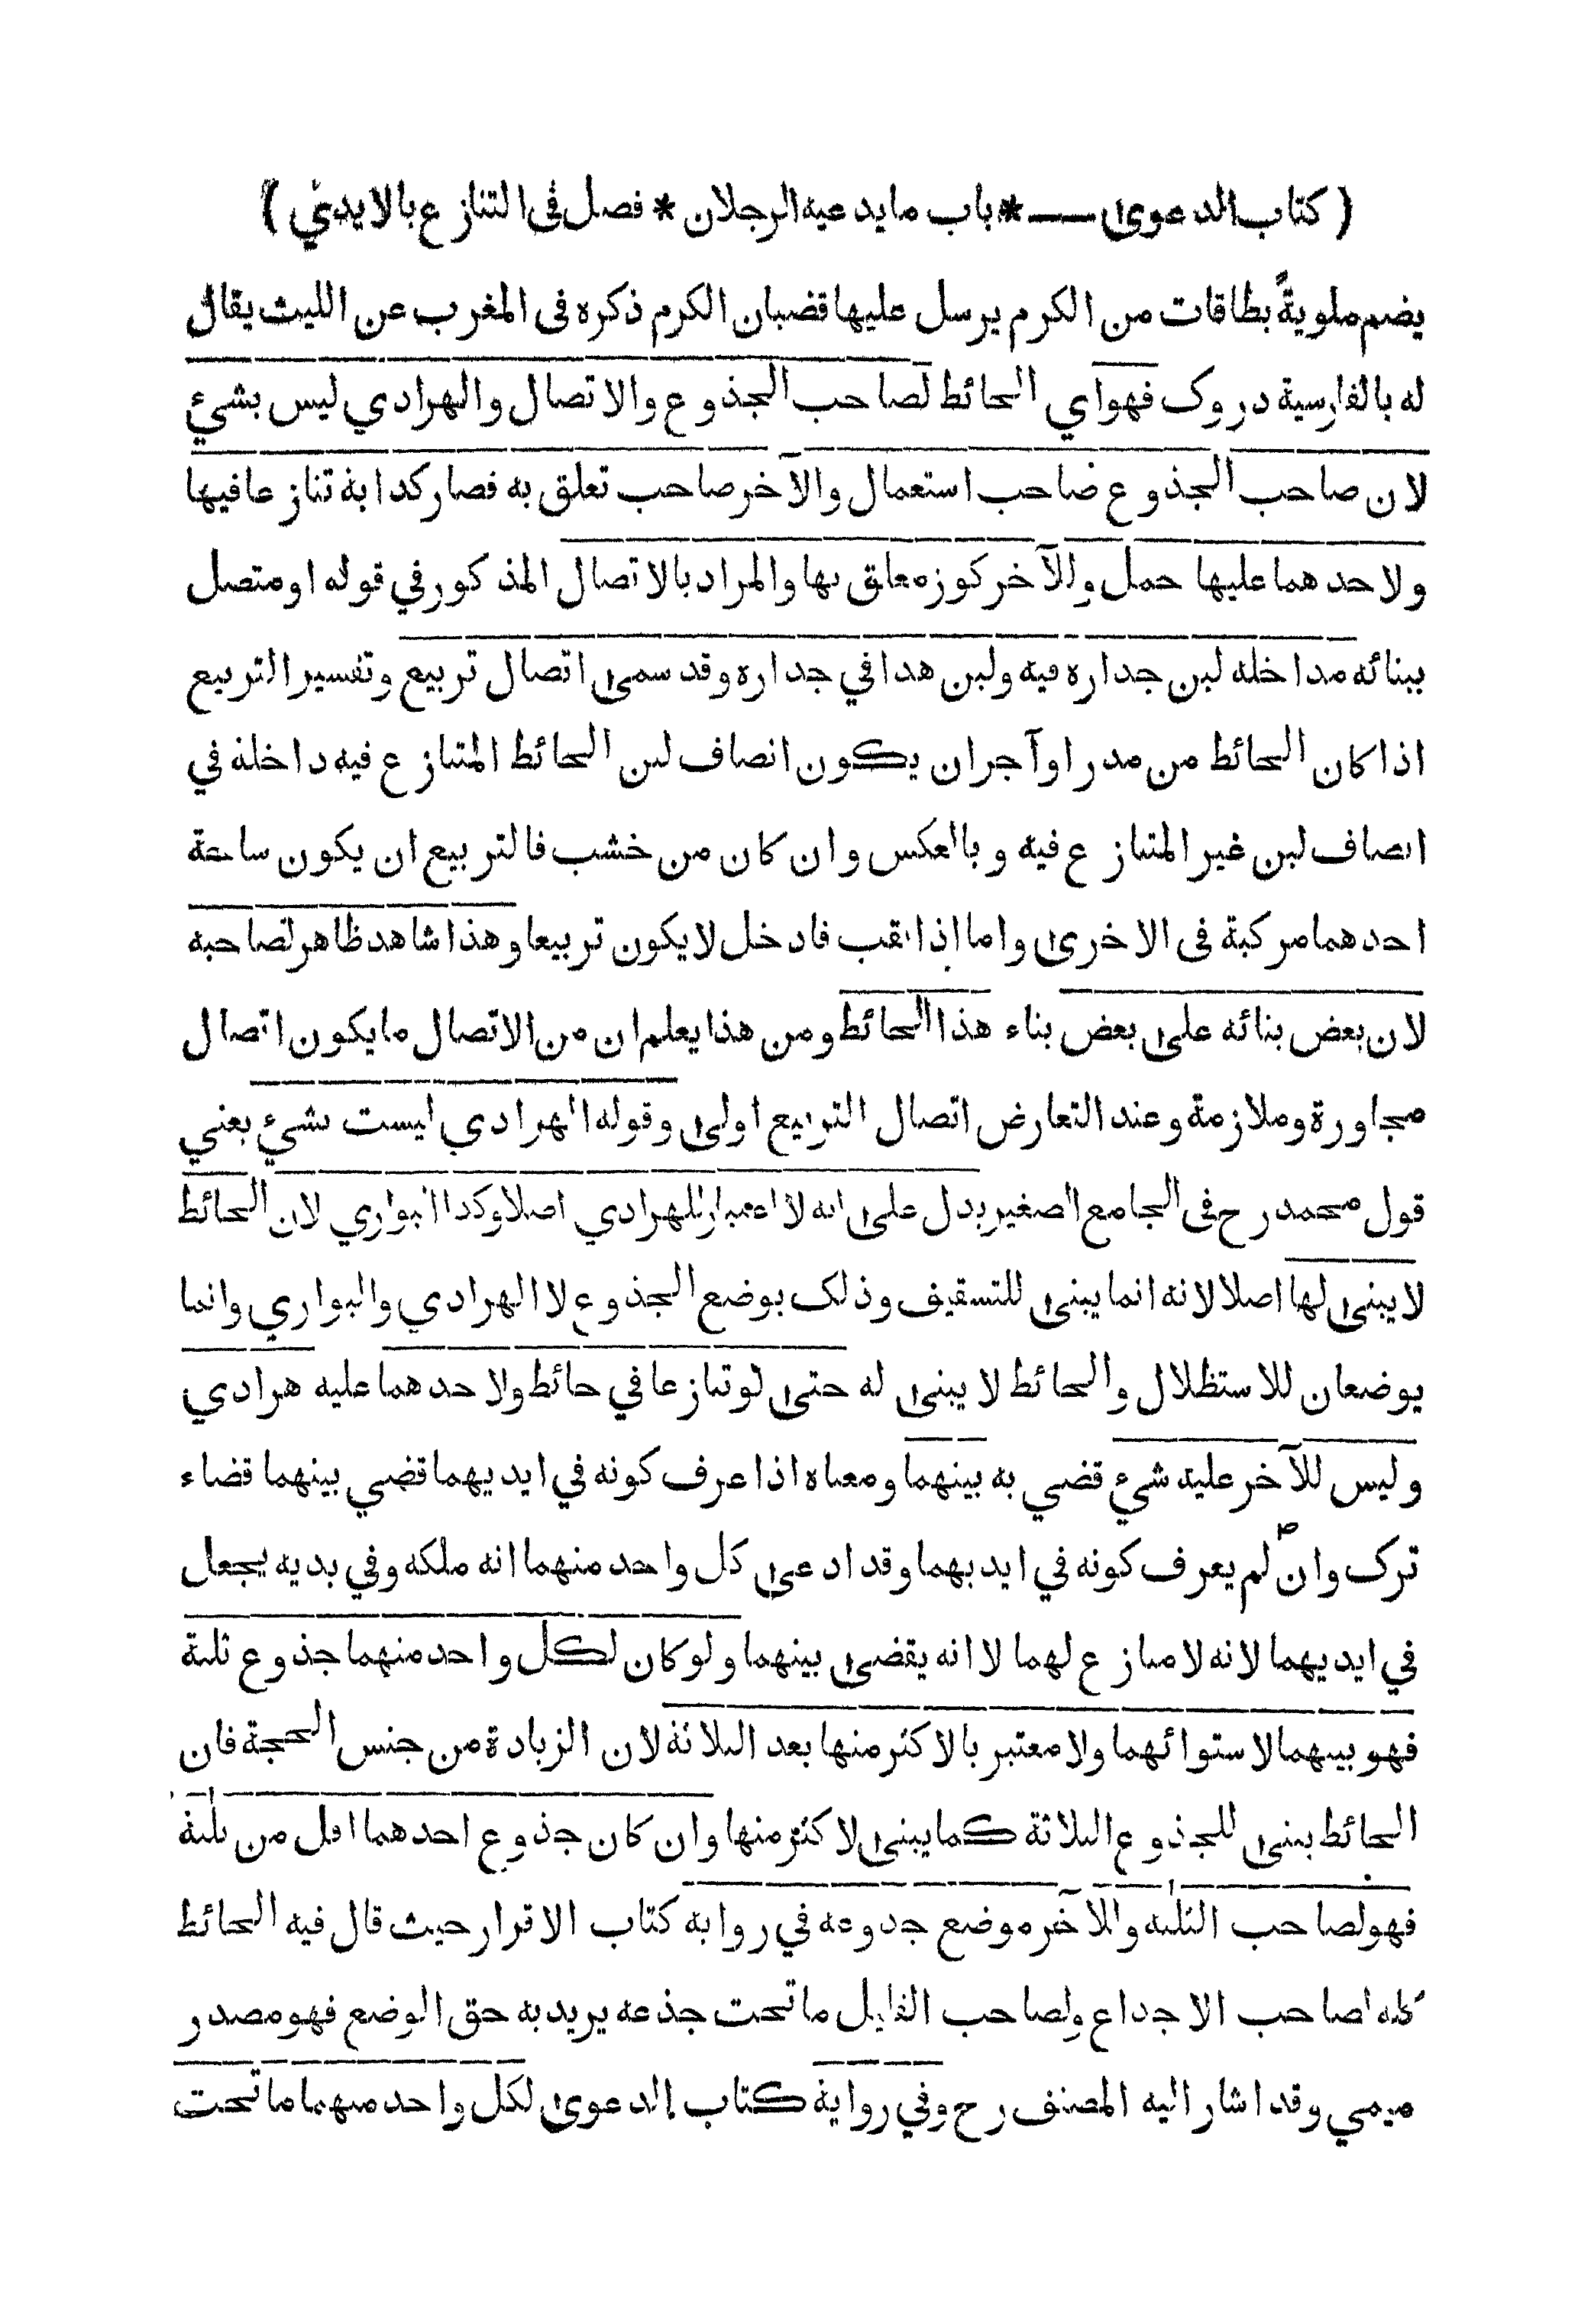 ( كتاب الدعوى — * باب ما يدعيه الرجلان * فصل في التنازع بالايدي )
يضم ملويةً بطاقات من الكرم يرسل عليها قضبان الكرم ذكره في المغرب عن الليث يقال
له بالفارسية دروك فهو اي الحائط لصاحب الجذوع والاتصال والهرادي ليس بشيء
لان صاحب الجذوع صاحب استعمال والآخر صاحب تعلق به فصار كدابة تنازعا فيها
ولاحدهما عليها حمل وللآخر كوزه معلق بها والمراد بالاتصال المذكور في قوله او متصل
ببنائه مداخلة لبن جداره فيه ولبن هذا في جداره وقد سمى اتصال تربيع وتفسير التربيع
اذا كان الحائط من مدر او آجر ان يكون انصاف لبن الحائط المتنازع فيه داخلة في
انصاف لبن غير المتنازع فيه وبالعكس وان كان من خشب فالتربيع ان يكون ساحة
احدهما مركبة في الاخرى واما اذا نقب فادخل لا يكون تربيعا وهذا شاهد ظاهر لصاحبه
لان بعض بنائه على بعض بناء هذا الحائط ومن هذا يعلم ان من الاتصال ما يكون اتصال
مجاورة وملازمة وعند التعارض اتصال التربيع اولى وقوله الهرادي ليست بشيء يعني
قول محمد رح في الجامع الصغير يدل على انه لا اعتبار للهرادي اصلا وكذا البواري لان الحائط
لا يبنى لها اصلا لانه انما يبنى للتسقيف وذلك بوضع الجذوع لا الهرادي والبواري وانما
يوضعان للاستظلال والحائط لا يبنى له حتى لو تنازعا في حائط ولاحدهما عليه هرادي
وليس للآخر عليه شيء قضي به بينهما ومعناه اذا عرف كونه في ايديهما قضي بينهما قضاء
ترك وان لم يعرف كونه في ايديهما وقد ادعى كل واحد منهما انه ملكه وفي يديه يجعل
في ايديهما لانه لا منازع لهما لا انه يقضى بينهما ولو كان لكل واحد منهما جذوع ثلثة
فهو بينهما لاستوائهما ولا معتبر بالاكثر منها بعد الثلاثة لان الزيادة من جنس الحجة فان
الحائط يبنى للجذوع الثلاثة كما يبنى لاكثر منها وان كان جذوع احدهما اقل من ثلثة
فهو لصاحب الثلثة وللآخر موضع جذوعه في رواية كتاب الاقرار حيث قال فيه الحائط
كله لصاحب الاجذاع ولصاحب القليل ما تحت جذعه يريد به حق الوضع فهو مصدر
ميمي وقد اشار اليه المصنف رح وفي رواية كتاب الدعوى لكل واحد منهما ما تحت